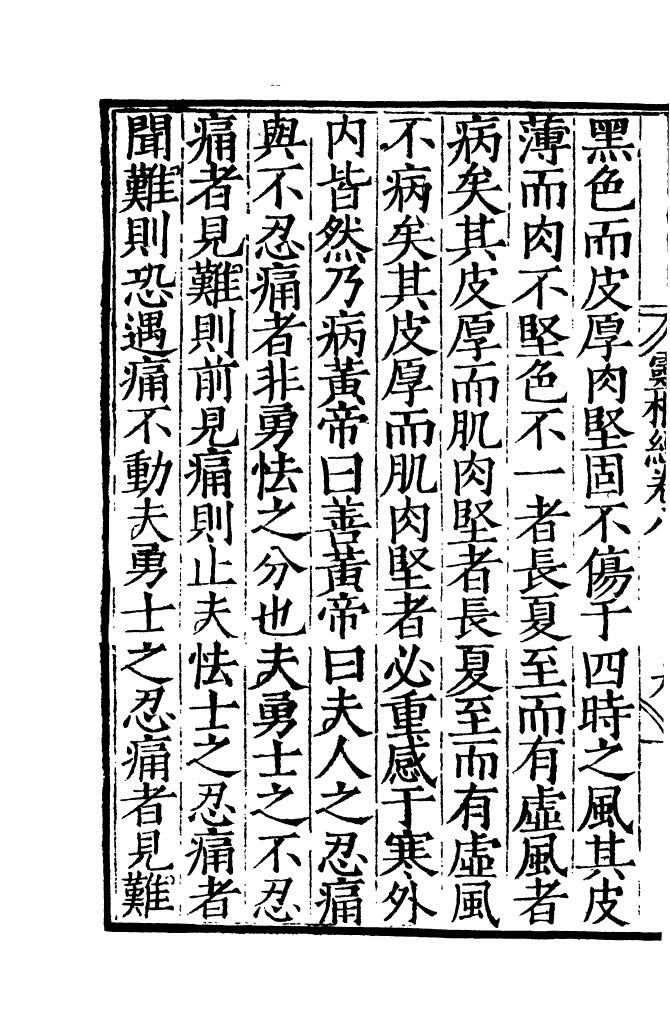 靈樞經卷八
九
黑色而皮厚肉堅固不傷于四時之風其皮
薄而肉不堅色不一者長夏至而有虛風者
病矣其皮厚而肌肉堅者長夏至而有虛風
不病矣其皮厚而肌肉堅者必重感于寒外
内皆然乃病黃帝曰善黃帝曰夫人之忍痛
與不忍痛者非勇怯之分也夫勇士之不忍
痛者見難則前見痛則止夫怯士之忍痛者
聞難則恐遇痛不動夫勇士之忍痛者見難